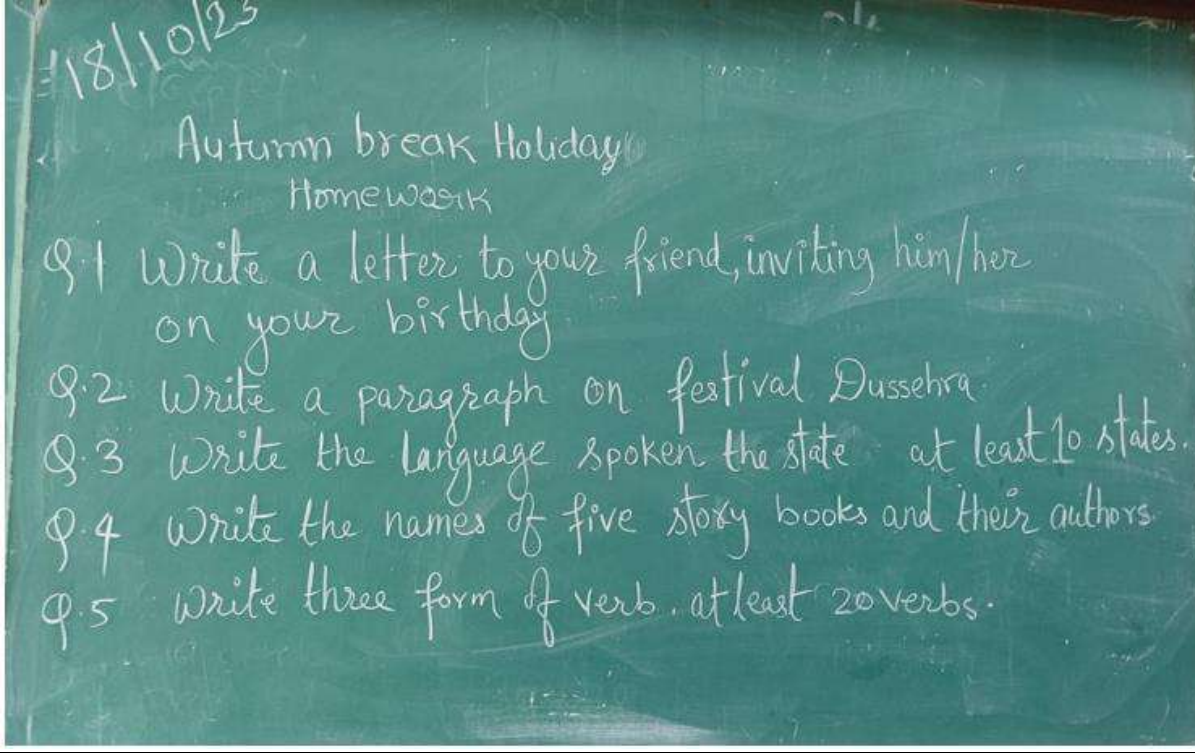 18/10/23
Autumn break Holiday
Homework
Q.1 Write a letter to your friend, inviting him/her
on your birthday.
Q.2 Write a paragraph on festival Dussehra.
Q.3 Write the language spoken the state at least 10 states.
Q.4 Write the names of five story books and their authors.
Q.5 Write three form of verb. at least 20 verbs.